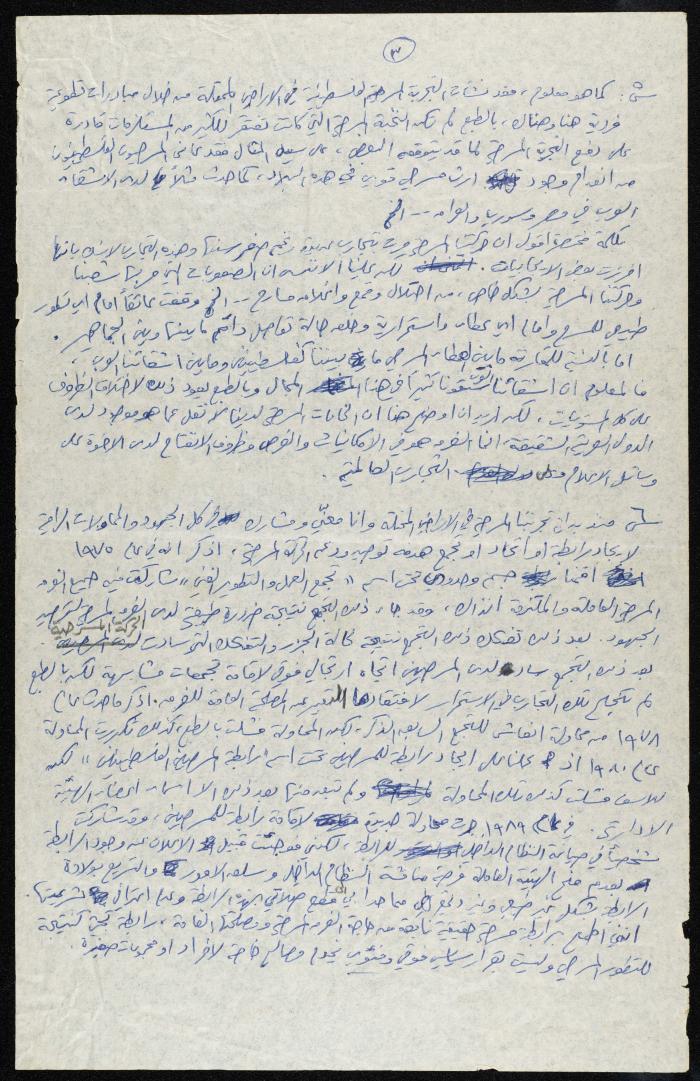 ٣
ش: كما هو معلوم، فقد نشأت التجربة المسرحية الفلسطينية في الأراضي المحتلة من خلال مبادرات تطوعية
فردية هنا وهناك، بالطبع لم تكن النخبة المسرحية التي كانت تفتقر للكثير من المستلزمات قادرة
على دفع التجربة المسرحية لما قد يتوقعه البعض، على سبيل المثال فقد عانى المسرحيون الفلسطينيون
من انعدام وجود ارث مسرحي قوي في هذه البلاد، كما حدث مثلاً لدى الاشقاء
العرب في مصر وسوريا والعراق --- الخ
بكلمة مختصرة اقول ان حركتنا المسرحية مرت بتجارب عديدة رغم صغر سنها وهذه التجارب لا شك بانها
افرزت بعض الايجابيات. لكن علينا الا ننسى ان الصعوبات التي مر بها شعبنا
وحركتنا المسرحية بشكل خاص، من احتلال وقمع واغلاق مسارح --- الخ وقفت عائقاً امام اي تطور
طبيعي للمسرح وامام اي عطاء واستمرارية وخلق حالة تواصل دائم ما بينها وبين الجماهير.
اما بالنسبة للمقارنة ما بين العطاء المسرحي ما بيننا كفلسطينيين وما بين اشقائنا العرب،
فالمعلوم ان اشقائنا العرب سبقونا كثيراً في هذا المجال وبالطبع يعود ذلك لاختلاف الظروف
على كل المستويات، لكن اريد ان اوضح هنا ان الخامات المسرحية لدينا لا تقل عما هو موجود لدى
الدول العربية الشقيقة، انما الفرق هو في الامكانيات والفرص وظروف الانفتاح لدى الاخوة على
وسائل الاعلام وعلى التجارب العالمية.
ش منذ بدأت تجربتنا المسرحية في الأراضي المحتلة وانا معني ومشارك في كل الجهود والمحاولات الرامية
لايجاد رابطة او اتحاد او تجمع هدفه توحيد ودعم الحركة المسرحية، اذكر انه في عام ١٩٧٥
اقمنا جسم وحدوي تحت اسم "تجمع العمل والتطوير الفني" شاركت فيه جميع الفرق
المسرحية العاملة والملتزمة آنذاك، وقد جاء ذلك التجمع نتيجة ضرورة طبيعية لدى الفرق المسرحية لتوحيد
الجهود. بعد ذلك تفكك ذلك التجمع نتيجة لحالة الجزر والتفكك التي سادت الحركة المسرحية
بعد ذلك التجمع ساد لدى المسرحيين اتجاه ارتجالي فوقي لاقامة تجمعات مشابهة لكن بالطبع
لم تنجح تلك التجارب في الاستمرار لافتقادها التعبير عن المصلحة العامة للفرق. اذكر ما حدث عام
١٩٧٨ من محاولة انعاش للتجمع السابق الذكر، لكن المحاولة فشلت بالطبع، كذلك تكررت المحاولة
عام ١٩٨٠ اذ عملنا على ايجاد رابطة للمسرحيين تحت اسم "رابطة المسرحيين الفلسطينيين" لكن
للاسف فشلت كذلك تلك المحاولة ولم تبق منها بعد ذلك الا اسماء اعضاء الهيئة
الادارية. في عام ١٩٨٩ جرت محاولة جديدة لاقامة رابطة للمسرحيين، وقد شاركت
شخصياً في صياغة النظام الداخلي للرابطة، لكنني فوجئت قبيل الاعلان عن وجود الرابطة
بعدم منح الهيئة العامة فرصة مناقشة النظام الداخلي وسلق الامور والتسريع بولادة
الرابطة بشكل غير طبيعي وغير دقيق مما حدا بي الى قطع صلاتي بهذه الرابطة وعدم اعترافي بشرعيتها.
انني اطمح برابطة مسرحية حقيقية نابعة من حاجة الفرق المسرحية ومصلحتها العامة، رابطة تجيء كنتيجة
للتطور المسرحي وليست بقرار سياسي فوقي وفئوي يخدم مصالح خاصة لافراد او مجموعات صغيرة